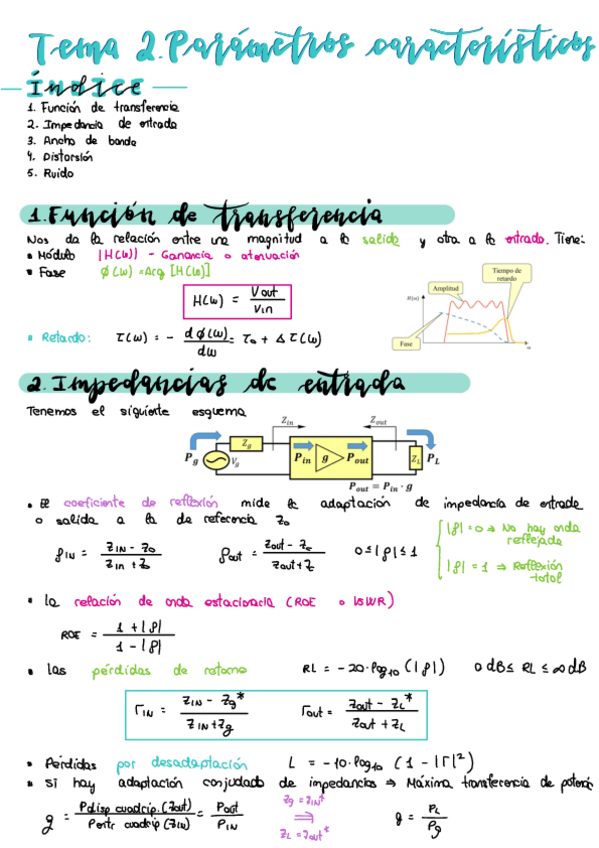 Tema 2. Parámetros característicos
Índice
1. Función de transferencia
2. Impedancia de entrada
3. Ancho de banda
4. Distorsión
5. Ruido
1. Función de transferencia
Nos da la relación entre una magnitud a la salida y otra a la entrada. Tiene:
• Módulo |H(ω)| - Ganancia o atenuación
• Fase ϕ(ω) = Arg [H(ω)]
H(ω) = Vout / Vin
• Retardo: τ(ω) = - dϕ(ω) / dω = τo + Δτ(ω)
Tiempo de retardo
Amplitud
H(ω)
Fase
ω
2. Impedancias de entrada
Tenemos el siguiente esquema
Zin Zout
Zg
Pg Vg Pin g Pout ZL PL
Pout = Pin · g
• El coeficiente de reflexión mide la adaptación de impedancia de entrada
o salida a la de referencia Zo
ρIN = ZIN - Zo / Zin + Zo ρout = Zout - Zo / Zout + Z 0≤|ρ|≤1
|ρ| = 0 ⇒ No hay onda reflejada
|ρ| = 1 ⇒ Reflexión total
• La relación de onda estacionaria (ROE o VSWR)
ROE = 1 + |ρ| / 1 - |ρ|
• Las pérdidas de retorno RL = -20·log10 (|ρ|) 0 dB ≤ RL ≤ ∞ dB
ΓIN = ZIN - Zg* / ZIN + Zg Γout = Zout - ZL* / Zout + ZL
• Pérdidas por desadaptación L = -10·log10 (1 - |Γ|²)
• Si hay adaptación conjugada de impedancias ⇒ Máxima transferencia de potencia
g = Pdisp cuadrip. (Zout) / Pentr cuadrip (ZIN) = Pout / PIN Zg = ZIN* ⇒ ZL = Zout* g = PL / Pg